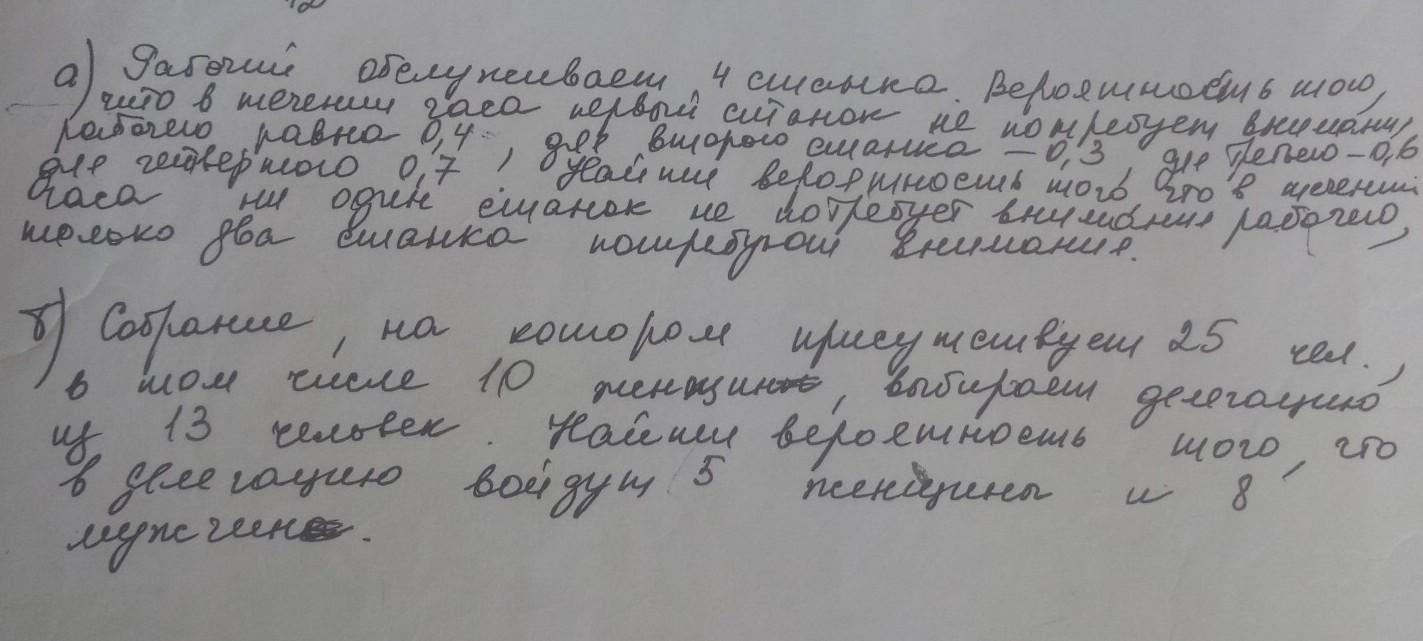 а) Рабочий обслуживает 4 станка. Вероятность того,
что в течении часа первый станок не потребует внимания
рабочего равна 0,4, для второго станка – 0,3, для третьего – 0,6
для четвертого 0,7, Найти вероятность того что в течении
часа ни один станок не потребует внимания рабочего,
только два станка потребуют внимания.
б) Собрание, на котором присутствует 25 чел.,
в том числе 10 женщин, выбирает делегацию
из 13 человек. Найти вероятность того, что
в делегацию войдут 5 женщины и 8
мужчин.